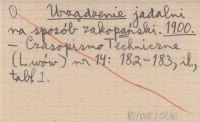 O Urządzenie jadalni
na sposób zakopański. 1900.
— Czasopismo Techniczne
(Lwów) nr 14: 182-183, il.,
tabl. 1.